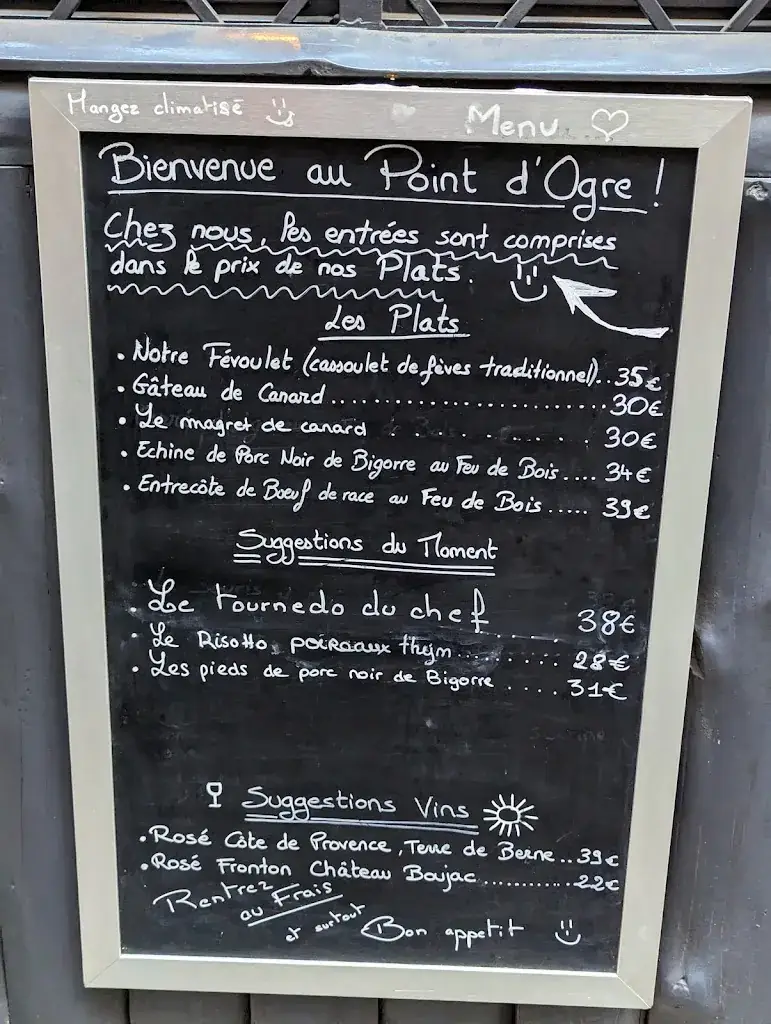 Mangez climatisé
Menu
Bienvenue au Point d'Ogre !
Chez nous, les entrées sont comprises
dans le prix de nos Plats.
Les Plats
• Notre Févoulet (cassoulet de fèves traditionnel)..35€
• Gâteau de Canard..............................30€
• Le magret de canard . . . . . . . . 30€
• Echine de Porc Noir de Bigorre au Feu de Bois.... 34€
• Entrecôte de Boeuf de race au Feu de Bois ..... 39€
Suggestions du Moment
• Le tournedo du chef ........ 38€
• Le Risotto poireaux thym .......... 28€
• Les pieds de porc noir de Bigorre .... 31€
Suggestions Vins
• Rosé Côte de Provence, Terre de Berne..39€
• Rosé Fronton Château Boujac............22€
Rentrez
au Frais
et surtout Bon appetit